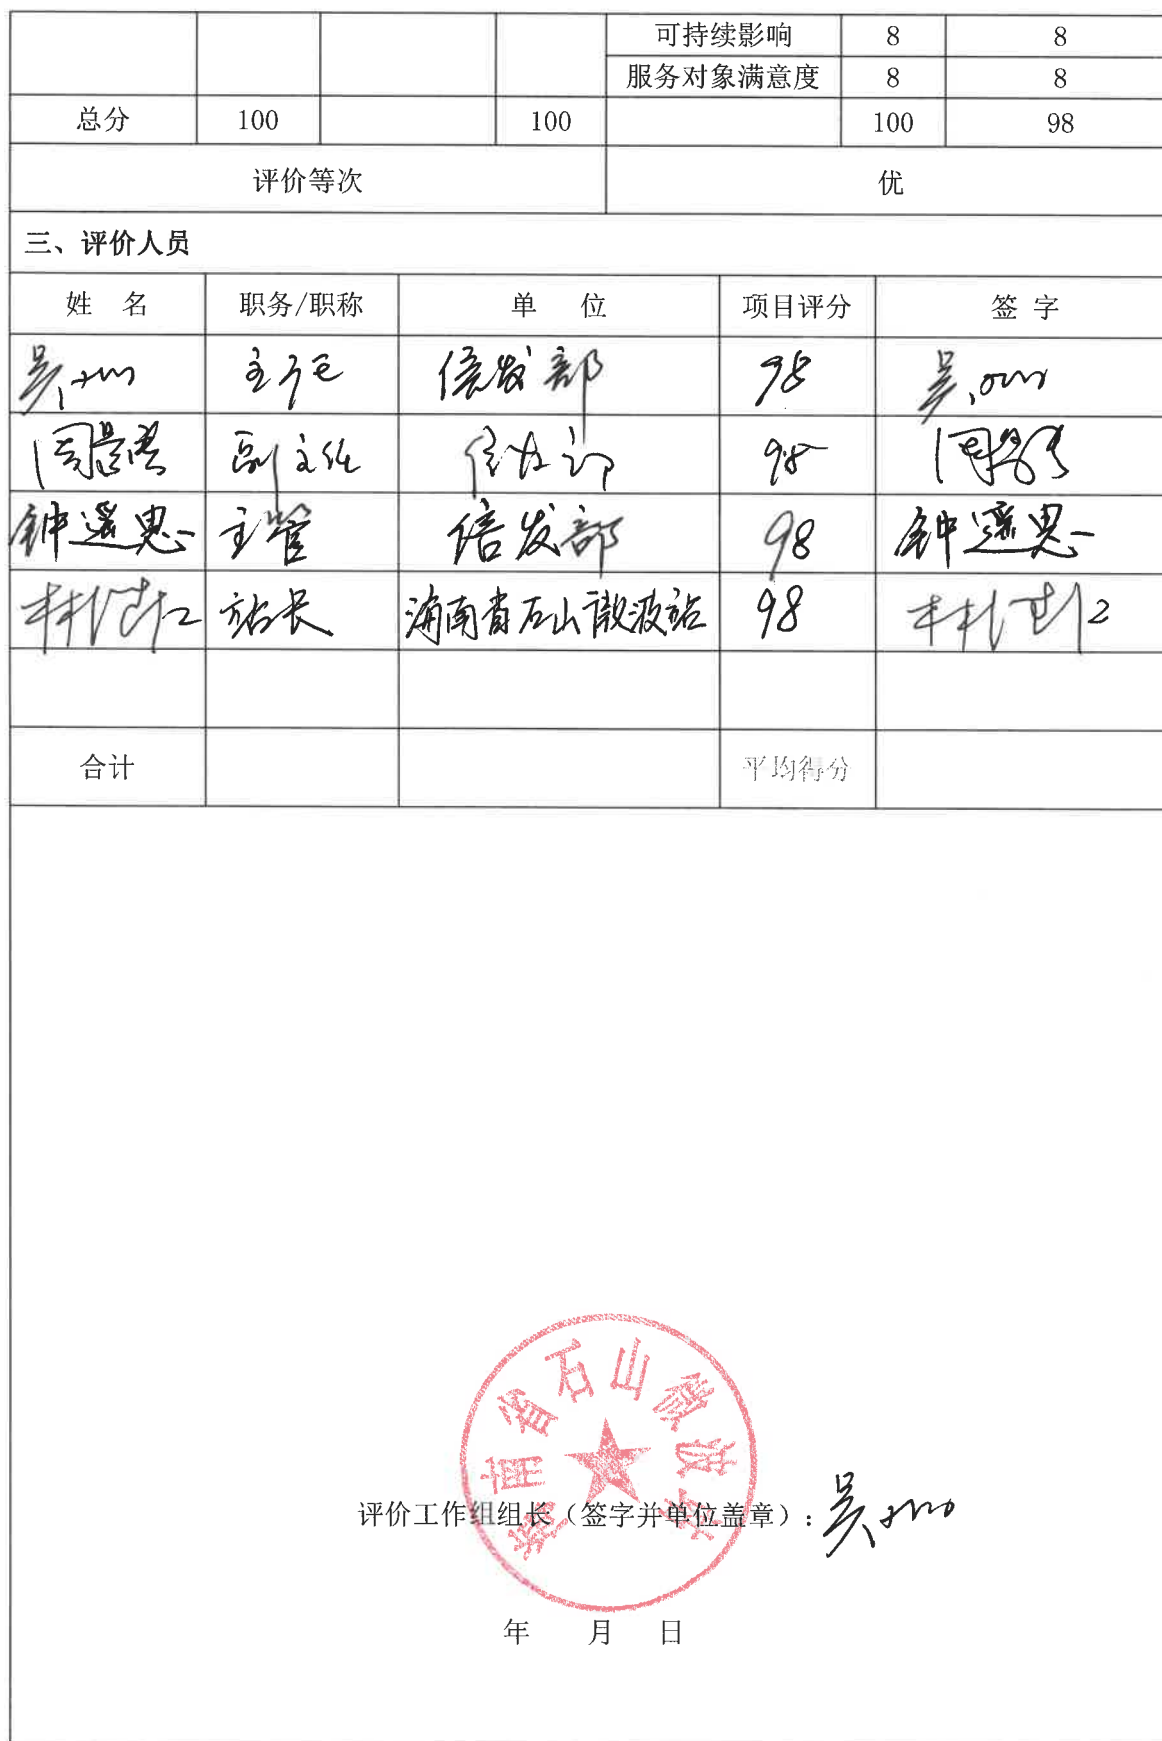 可持续影响 8 8
服务对象满意度 8 8
总分 100 100 100 98
评价等次 优
三、评价人员
姓 名 职务/职称 单 位 项目评分 签 字
吴 主任 信发部 98 吴
周 副主任 信发部 98 周
钟遥思 主管 信发部 98 钟遥思
林 站长 海南省石山微波站 98 林
合计 平均得分
海南省石山微波站
评价工作组组长（签字并单位盖章）：吴
年 月 日